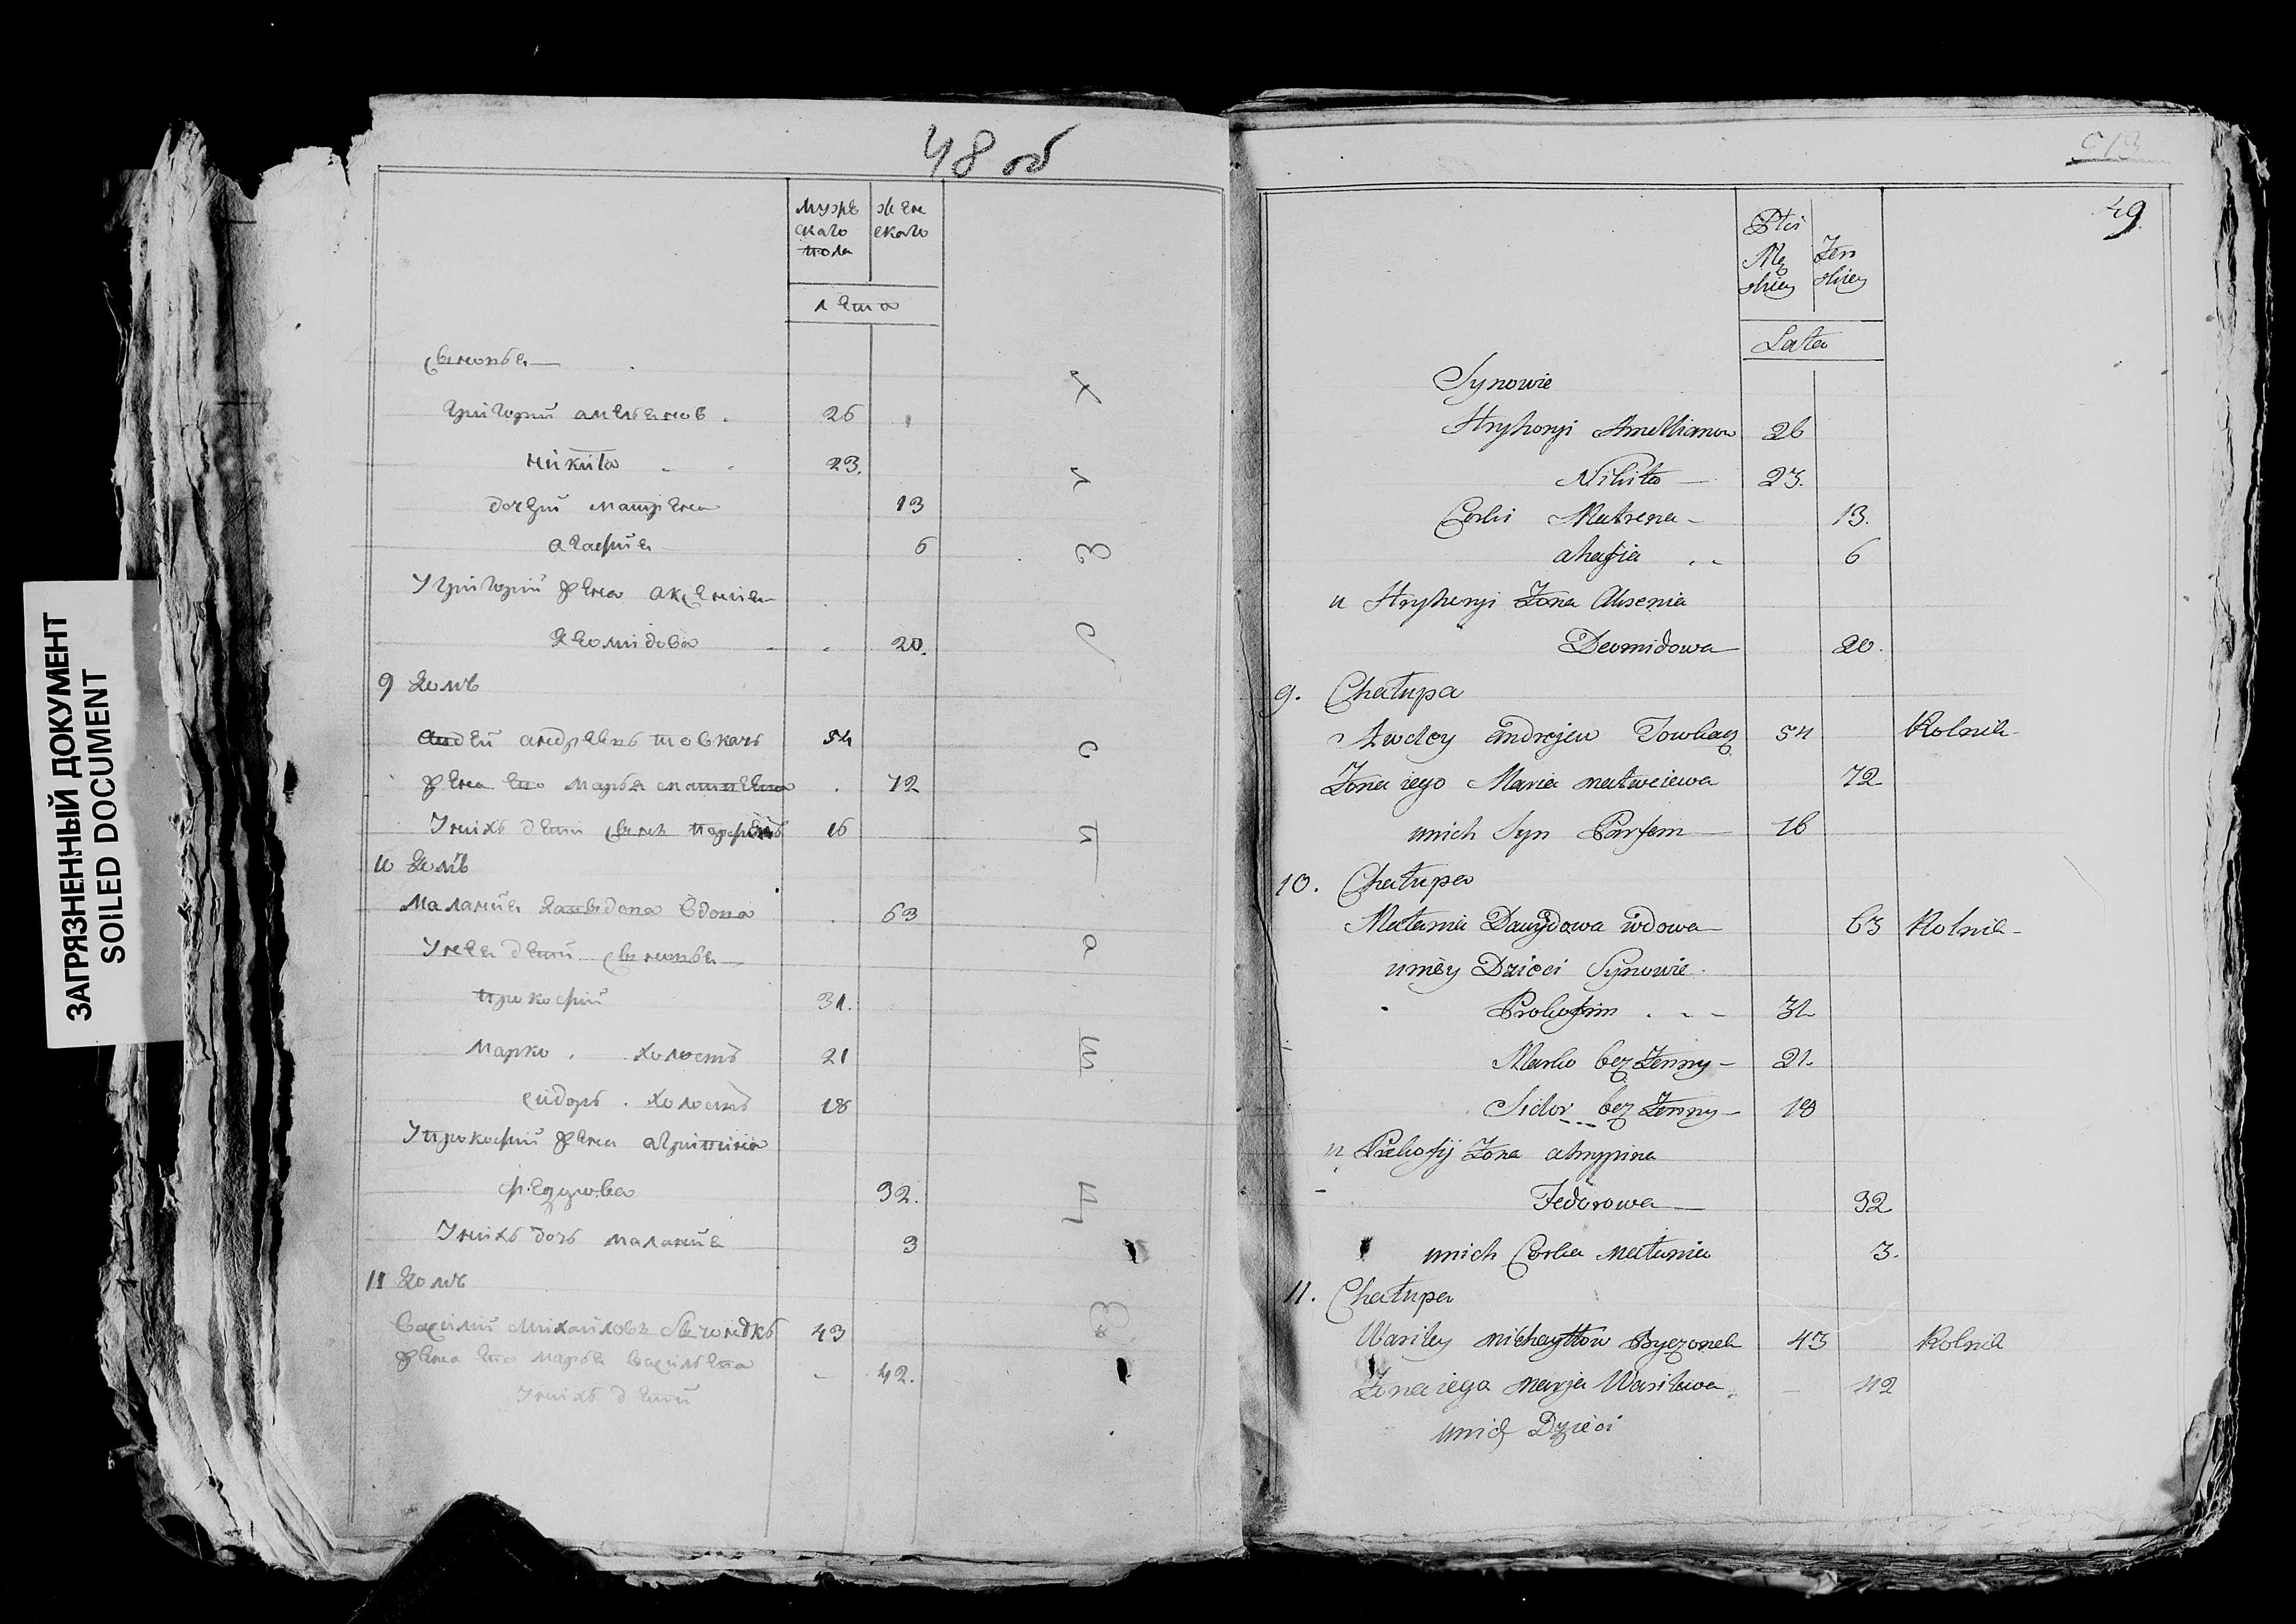 ЗАГРЯЗНЕННЫЙ ДОКУМЕНТ
SOILED DOCUMENT
48 об
мужескаго пола
женскаго
лета
сыновья
Григорий
26
Никита
23.
дочери Матрена
13
Агафия
6
У Григорий жена Аксения
Деомидова
20.
9 Домъ
Андреевъ Товкачъ
54
жена его Марья
72
У нихъ дети сынъ
16
10 Домъ
Малания вдова
63
У нея дети сыновья
Прокофий
31.
Марко . холостъ
21
Сидоръ . холостъ
18
У Прокофий жена Агрипина
Федорова
32.
У нихъ дочь Малания
3
11 Домъ
Василий Михайловъ
43
жена его Марья
42.
У нихъ дети
х
л
з
с
о
п
а
ш
ц
ы
49
Płci
Mę skiey
Żen skiey
Lata
Synowie
Hryhoryi Amellianow 26
Nikita 23.
Corki Matrena 13.
ahafia 6
u Hryhoryi Żona Aksenia
Deomidowa 20.
9. Chałupa
Awdey andrejew Towkacz 54 Rolnik
Żona iego Maria matweiewa 72
unich Syn Parfem 16
10. Chałupa
Małania Dawydowa wdowa 63 Rolnik
uniey Dzieci Synowie
Prokofim 31
Marko bez Żenny 21.
Sidor bez Żenny 18
u Prokofij Żona ahrypina
Fedorowa 32
unich Corka małania 3.
11. Chałupa
Wasiley michayłow Byczonek 43 Rolnik
Żona iego marja Wasilewa 42
unich Dzieci